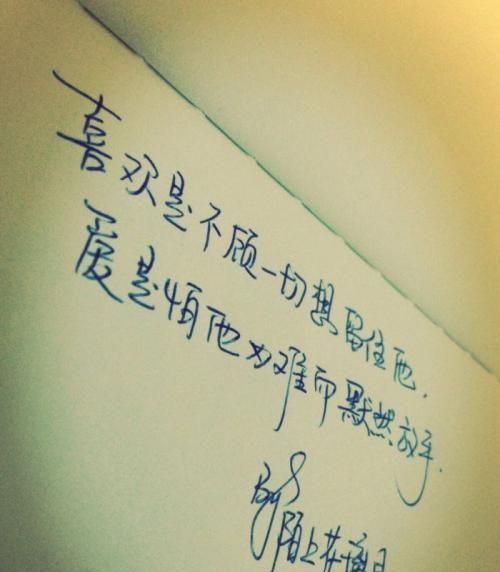 喜欢是不顾一切想留住他.
爱是怕他为难而默然放手.
By
陌上花